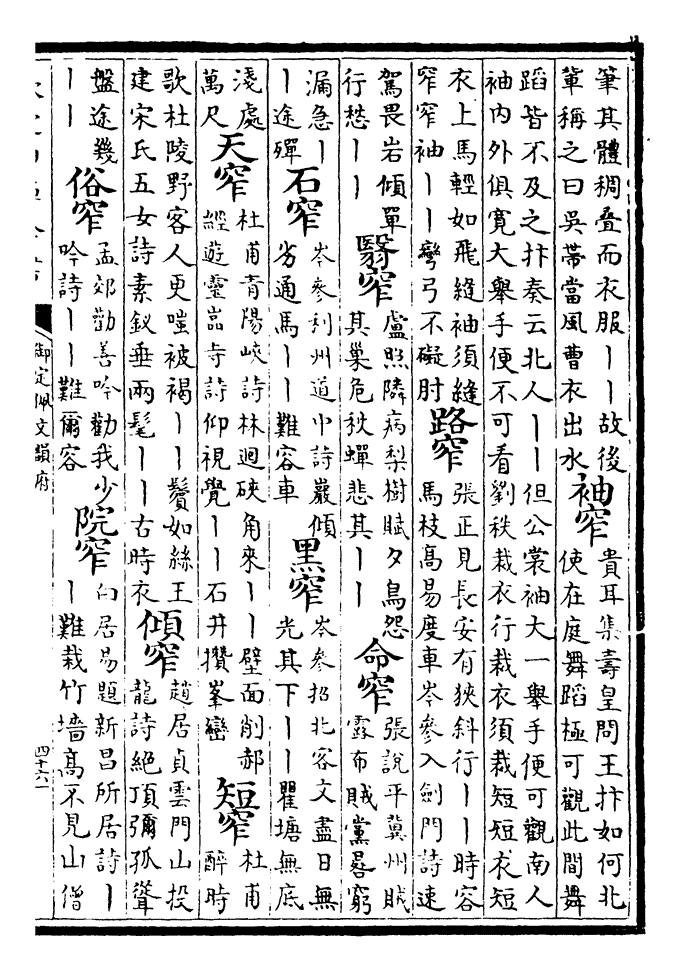 筆其體稠叠而衣服丨丨故後
軰稱之曰吳帶當風曹衣出水
袖窄
貴耳集壽皇問王抃如何北
使在庭舞蹈極可觀此間舞
蹈皆不及之抃奏云北人丨丨但公裳袖大一舉手便可觀南人
袖内外俱寛大舉手便不可看劉秩裁衣行裁衣須裁短短衣短
衣上馬輕如飛縫袖須縫
窄窄袖丨丨彎弓不礙肘
路窄
張正見長安有狹斜行丨丨時容
馬枝髙易度車岑參入劍門詩速
駕畏岩傾單
行愁丨丨
翳窄
盧照隣病梨樹賦夕鳥怨
其巢危秋蟬悲其丨丨
命窄
張說平冀州賊
露布賊黨晷窮
漏急丨
丨途殫
石窄
岑參利州道中詩巖傾
劣通馬丨丨難容車
黒窄
岑參招北客文盡日無
光其下丨丨瞿塘無底
淺處
萬尺
天窄
杜甫青陽峽詩林迴硤角來丨丨壁面削郝
經遊靈嵓寺詩仰視覺丨丨石井攢峯巒
短窄
杜甫
醉時
歌杜陵野客人更嗤被褐丨丨鬢如絲王
建宋氏五女詩素釵垂兩髦丨丨古時衣
傾窄
趙居貞雲門山投
龍詩絶頂彌孤聳
盤途幾
丨丨
俗窄
孟郊勸善吟勸我少
吟詩丨丨難爾容
院窄
白居易題新昌所居詩丨
丨難栽竹墻髙不見山僧
御定佩文韻府